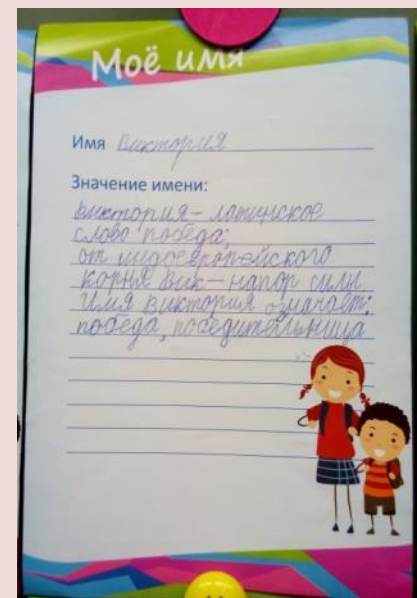 Моё имя
Имя Виктория
Значение имени:
Виктория – латинское
слово победа;
от индоевропейского
корня вик – напор силы.
Имя Виктория означает:
победа, победительница